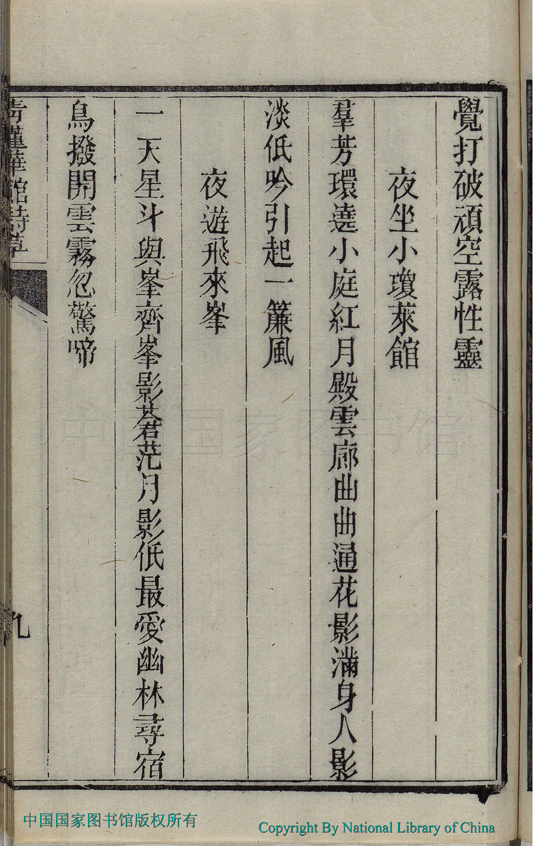 覺打破頑空露性靈
夜坐小瓊萊館
羣芳環遶小庭紅月殿雲廊曲曲通花影滿身人影
淡低吟引起一簾風
夜遊飛來峯
一天星斗與峯齊峯影蒼茫月影低最愛幽林尋宿
鳥撥開雲霧忽驚啼
華館詩草
九
中国国家图书馆
中国国家图书馆版权所有
Copyright By National Library of China